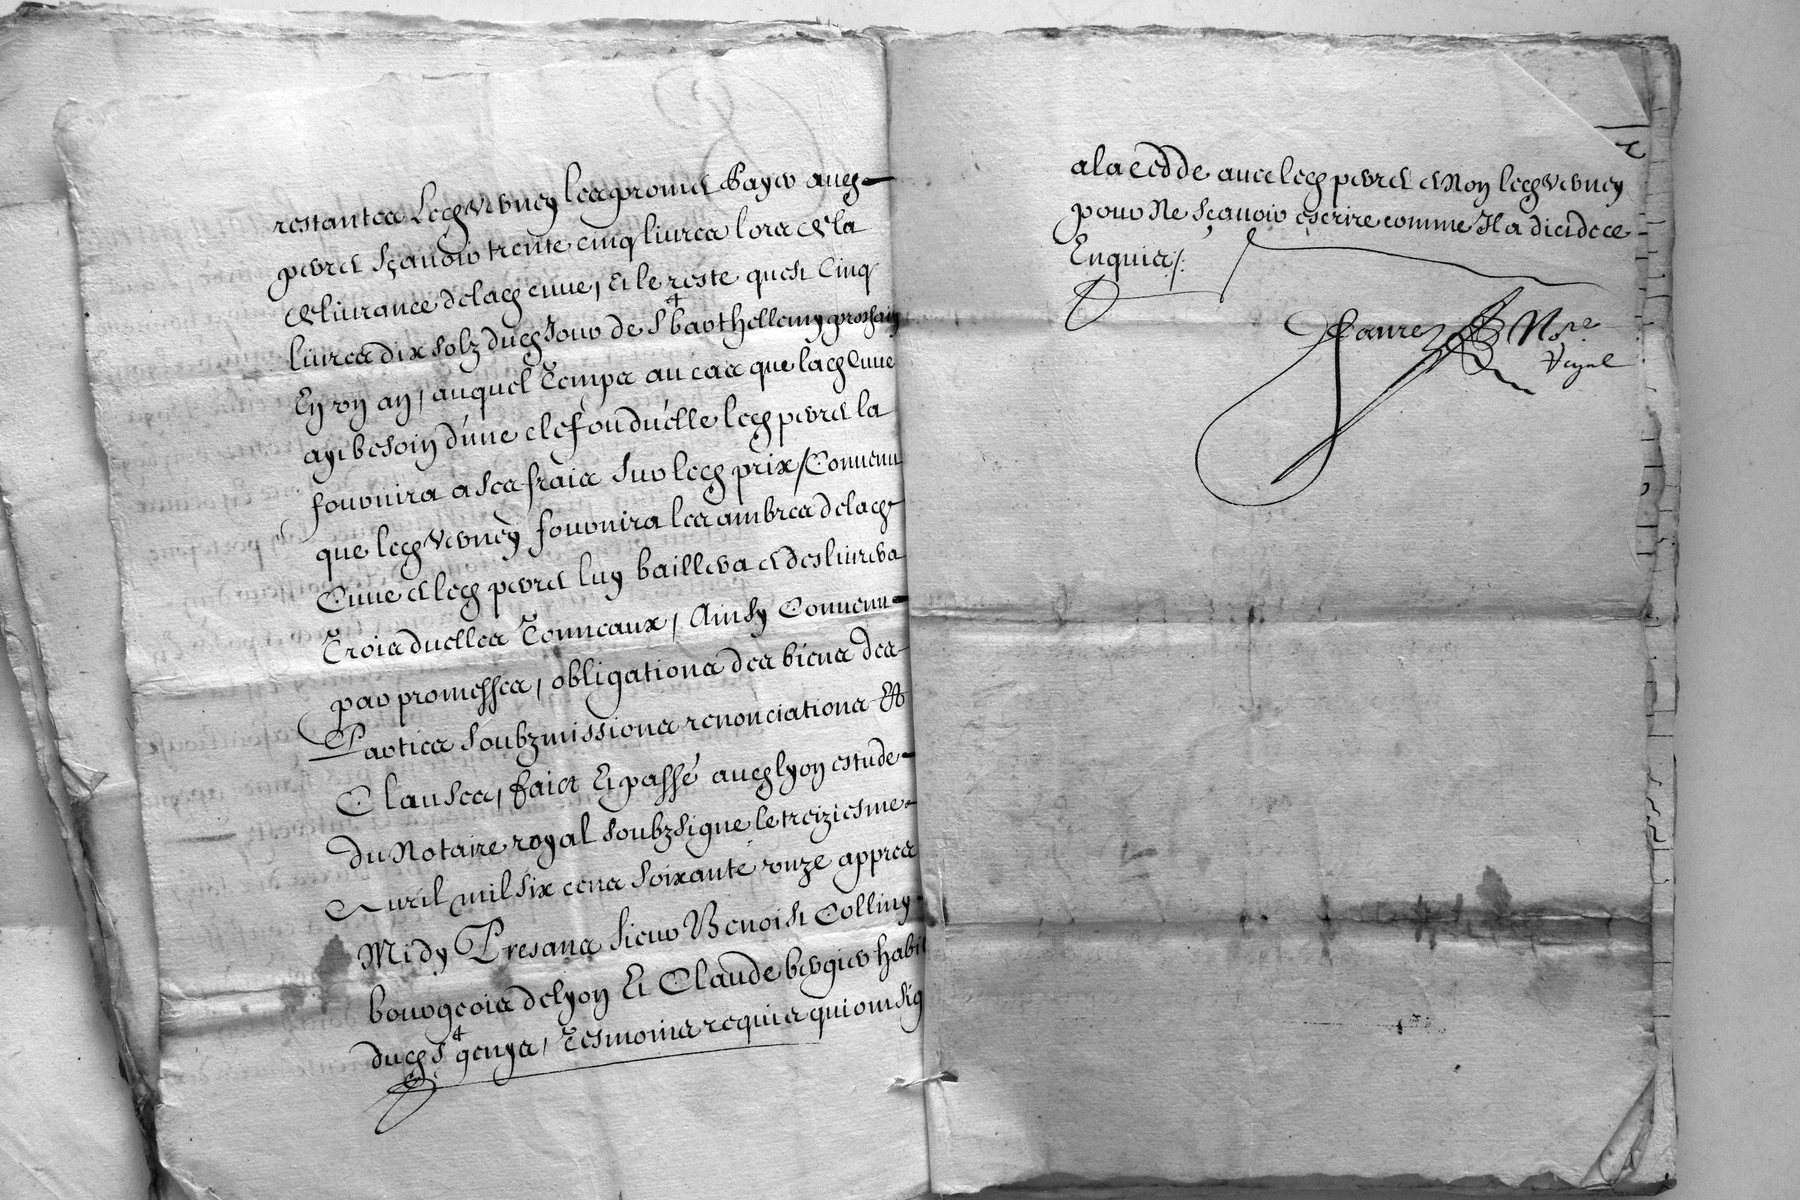 restantes led Verney les promet payer aud
perret sçavoir trente cinq livres lors de la
delivrance de lad cuve, Et le reste quest Cinq
livres dix solz dud Jour de St barthellemy prochain
En un an, auquel Temps au cas que lad Cuve
ayt besoin d'une clef ou duelle led perret la
fournira a ses fraiz sur led prix / Convenu
que led Verney fournira les ambres de lad
Cuve et led perret luy baillera et deslivrera
Trois duelles Tonneaux, Ainsy Convenu
par promesses, obligations des biens des
Parties soubzmissions renonciations Et
Clauses, faict Et passé aud lyon estude
du Notaire royal soubzsigne le treiziesme
Avril mil six cens soixante unze appres
Midy Presans sieur Benoist Collin
bourgeois de lyon Et Claude bergier habit
dud St genys, Tesmoins requis qui ont sig
a la cedde avec led perret et Non led Verney
pour Ne sçavoir escrire comme Il a dict de ce
Enquis /.
faure Nre
Royal